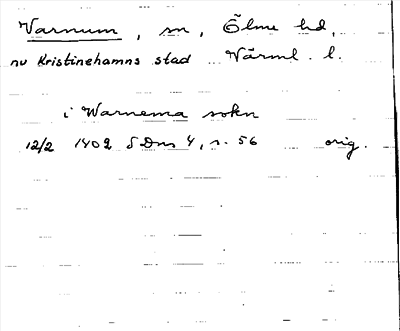 Varnum, sn, Ölme hd,
nu Kristinehamns stad Värml. l.
i Warnema sokn
12/2 1402 SDns 4, s. 56 orig.